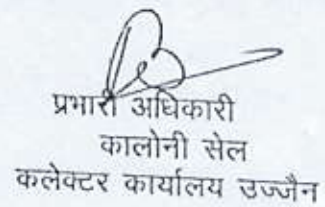 प्रभारी अधिकारी
कालोनी सेल
कलेक्टर कार्यालय उज्जैन